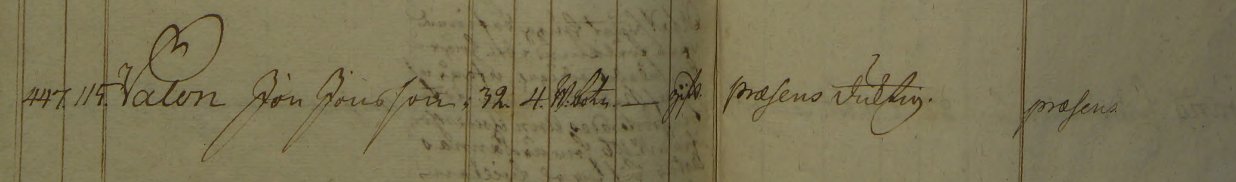 447. 115. Valon Jön Jönsson. 32. 4. W.Botn. — gift. præsens Tuchtig. præsens